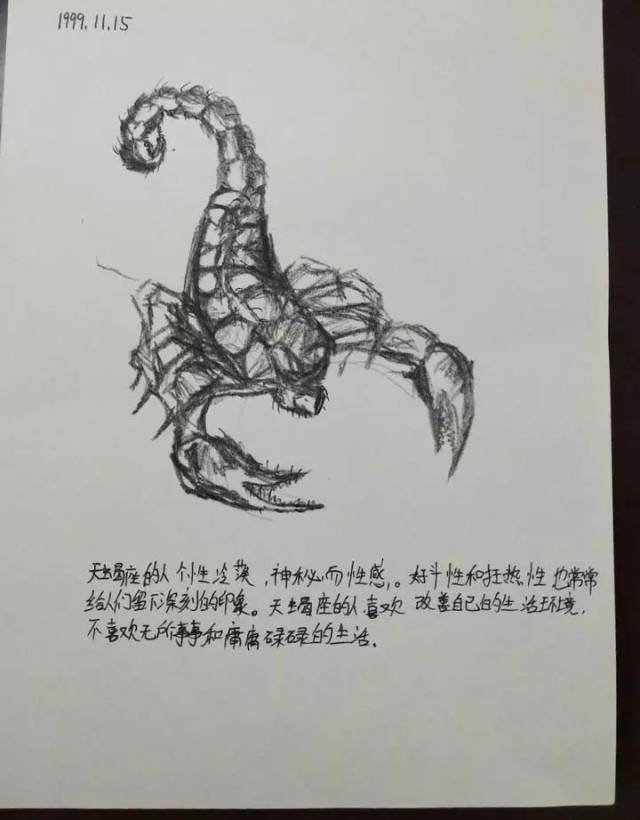 1999.11.15
天蝎座的人个性冷漠,神秘而性感,。好斗性和狂热性也常常
给人们留下深刻的印象。天蝎座的人喜欢改善自己的生活环境,
不喜欢无所事事和庸庸碌碌的生活.